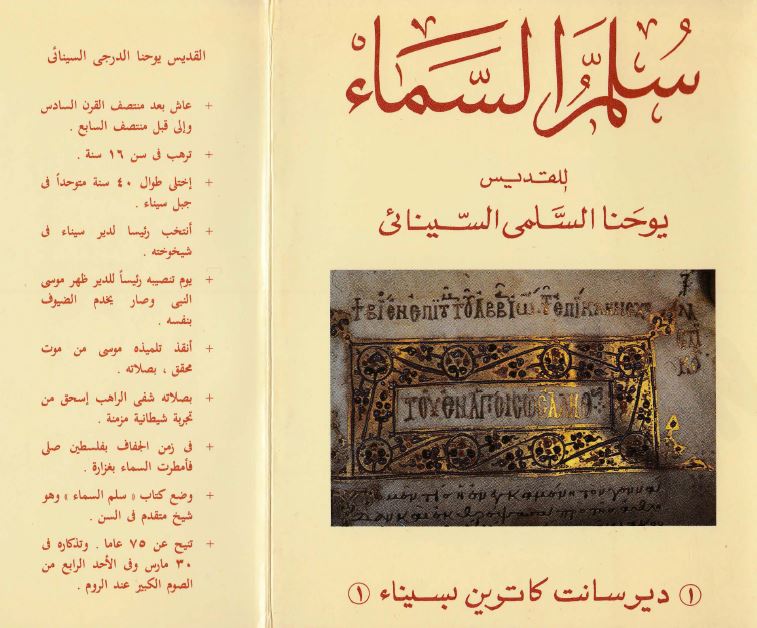 سُلَّمُ السَّمَاءِ
للقديس
يوحَنا السَّلمى السّينائى
① ديرسانت كاترين بسيناء ①
القديس يوحنا الدرجى السينائى
+ عاش بعد منتصف القرن السادس
وإلى قبل منتصف السابع .
+ ترهب فى سن ١٦ سنة .
+ إختلى طوال ٤٠ سنة متوحداً فى
جبل سيناء .
+ أنتخب رئيسا لدير سيناء فى
شيخوخته .
+ يوم تنصيبه رئيساً للدير ظهر موسى
النبى وصار يخدم الضيوف
بنفسه .
+ أنقذ تلميذه موسى من موت
محقق ، بصلاته .
+ بصلاته شفى الراهب إسحق من
تجربة شيطانية مزمنة .
+ فى زمن الجفاف بفلسطين صلى
فأمطرت السماء بغزارة .
+ وضع كتاب « سلم السماء » وهو
شيخ متقدم فى السن .
+ تنيح عن ٧٥ عاما . وتذكاره فى
٣٠ مارس وفى الأحد الرابع من
الصوم الكبير عند الروم .